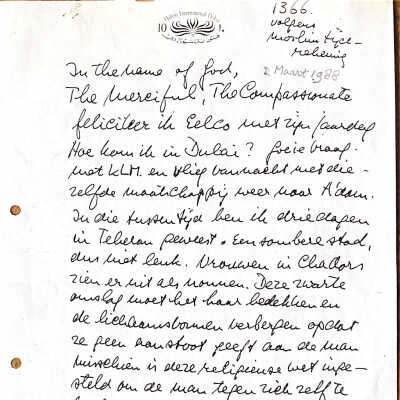 1366.
volgens
moslim tijd-
rekening
2 Maart 1988
In the name of God,
The Merciful, The Compassionate
feliciteer ik Eelco met zijn jaardag
Hoe kom ik in Dubai? Goeie vraag.
met KLM en vlieg vannacht met die-
zelfde maatschappij weer naar A'dam.
In die tussentijd ben ik drie dagen
in Teheran geweest. Een sombere stad,
dus niet leuk. Vrouwen in Chadors
zien er uit als nonnen. Deze zwarte
omslag moet het haar bedekken en
de lichaamsvormen verbergen opdat
ze geen aanstoot geeft aan de man
misschien is deze religieuse wet inge-
steld om de man tegen zich zelf te